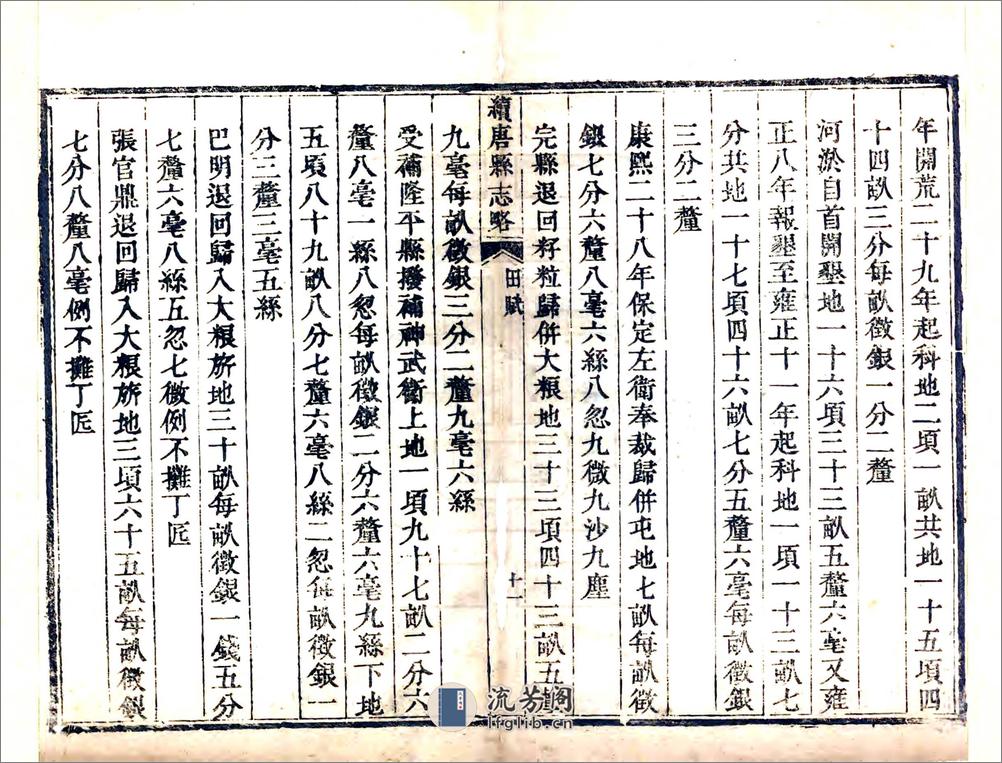 年開荒二十九年起科地二項一畝共地一十五項四
十四畝三分每畝徵銀一分二釐
河淤自首開墾地一十六項三十三畝五釐六毫又雍
正八年報墾至雍正十一年起科地一項一十三畝七
分共地一十七項四十六畝七分五釐六毫每畝徵銀
三分二釐
康熙二十八年保定左衛奉裁歸併屯地七畝每畝徵
銀七分六釐八毫六絲八忽九微九沙九塵
完縣退回籽粒歸併大粮地三十三項四十三畝五
續唐縣志略 田賦 十一
九毫每畝徵銀三分二釐九毫六絲
受補隆平縣撥補神武衛上地一項九十七畝二分六
釐八毫一絲八忽每畝徵銀二分六釐六毫九絲下地
五項八十九畝八分七釐六毫八絲二忽每畝徵銀一
分三釐三毫五絲
巴明退回歸入大粮旂地三十畝每畝徵銀一錢五分
七釐六毫八絲五忽七微例不攤丁匠
張官鼎退回歸入大粮旂地三項六十五畝每畝徵銀
七分八釐八毫例不攤丁匠
流芳閣
lfglib.cn